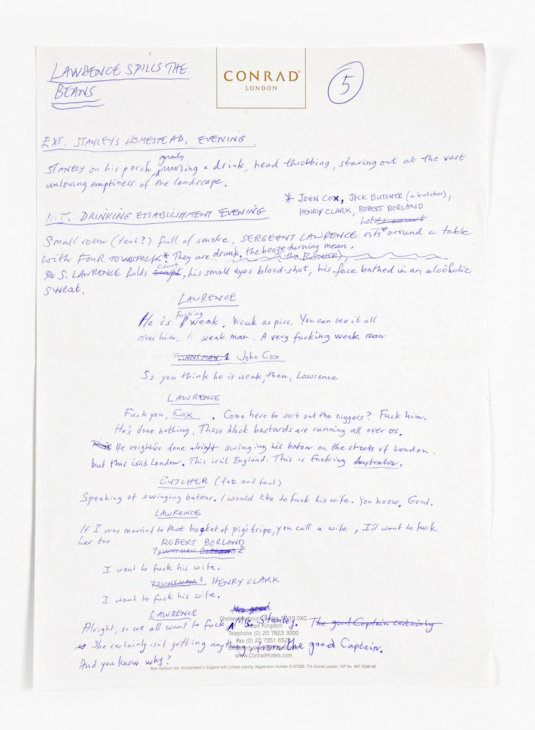 LAWRENCE SPILLS THE
BEANS
CONRAD
LONDON
5
EXT. STANLEY'S HOMESTEAD. EVENING
STANLEY on his porch nursing a drink, head throbbing, staring out at the vast
unloving emptiness of the landscape.
* JOHN COX, JACK BUTCHER (a butcher),
HENRY CLARK, ROBERT BORLAND
INT. DRINKING ESTABLISHMENT EVENING
Small room (tent?) full of smoke. SERGEANT LAWRENCE sits around a table
with FOUR TOWNSFOLK*. They are drunk, the booze turning mean.
S. LAWRENCE holds court, his small eyes blood-shot, his face bathed in an alcoholic
sweat.
LAWRENCE
He is fucking weak. Weak as piss. You can see it all
over him. A weak man. A very fucking weak man
TOWNSMAN 1 John Cox
So you think he is weak, then, Lawrence
LAWRENCE
Fuck you, Cox. Come here to sort out the niggers? Fuck him.
He's done nothing. Those black bastards are running all over us.
He might've done alright swinging his baton on the streets of London.
but this isn't London. This isn't England. This is fucking Australia.
BUTCHER (fat and foul)
Speaking of swinging batons. I would like to fuck his wife. You know, Good.
LAWRENCE
If I was married to that bucket of pig's tripe, you call a wife, I'd want to fuck
her too
ROBERT BORLAND
TOWNSMAN 2
I want to fuck his wife.
TOWNSMAN 3 HENRY CLARK
I want to fuck his wife.
LAWRENCE
Alright, so we all want to fuck Mrs Stanley. The good Captain certainly
She certainly isn't getting anything from the good Captain.
And you know why?
United Kingdom
Telephone (0) 20 7823 3000
www.ConradHotels.com